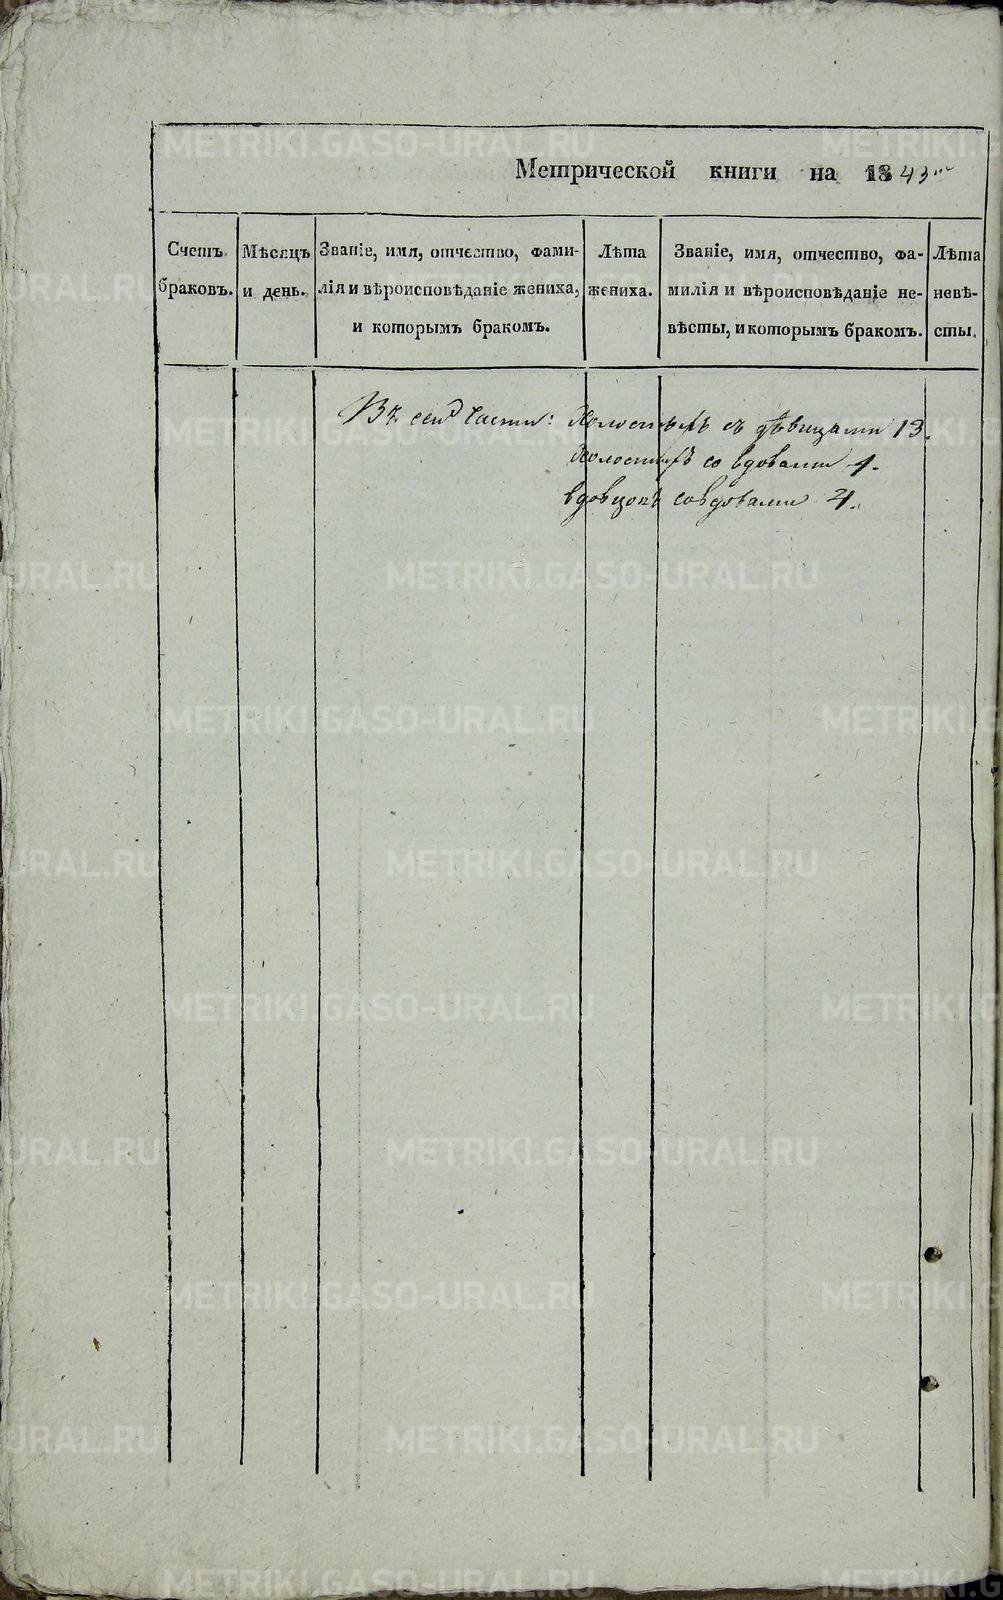 Метрической книги на 1843
Счетъ браковъ.
Мѣсяцъ и день.
Званіе, имя, отчество, фами-
лія и вѣроисповѣданіе жениха,
и которымъ бракомъ.
Лѣта
жениха.
Званіе, имя, отчество, фа-
милія и вѣроисповѣданіе не-
вѣсты, и которымъ бракомъ.
Лѣта
невѣ-
сты.
Въ сей части: Холостыхъ съ дѣвицами 13.
Холостыхъ со вдовами
вдовцовъ со вдовами
METRIKI.GASO-URAL.RU